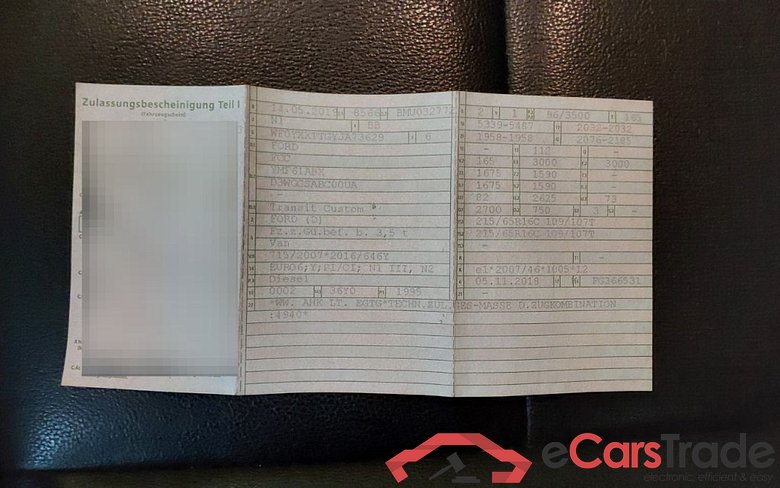 Zulassungsbescheinigung Teil I
(Fahrzeugschein)
14.05.2019 6566 BMU03277
N1 BB
WF0YXXTTGYJA73629 6
FORD
FCC
YMF61ABX
D3WGCSABC00UA
-
Transit Custom
FORD (D)
Fz.z.Gü.bef. b. 3,5 t
Van
715/2007*2016/646Y
EURO6;Y;PI/CI; N1 III, N2
Diesel
0002 36Y0 1995
*WW. AHK LT. EGTG*TECHN.ZUL.GES-MASSE D.ZUGKOMBINATION
:4940*
2 1 96/3500 165
5339-5487 2032-2032
1958-1958 2076-2185
- 112 -
165 3000 3000
1675 1590 -
1675 1590 -
82 2625 73
2700 750 3 -
215/65R16C 109/107T
215/65R16C 109/107T
-
- -
e1*2007/46*1005*12
05.11.2018 PG366531
-
eCarsTrade
electronic, efficient & easy